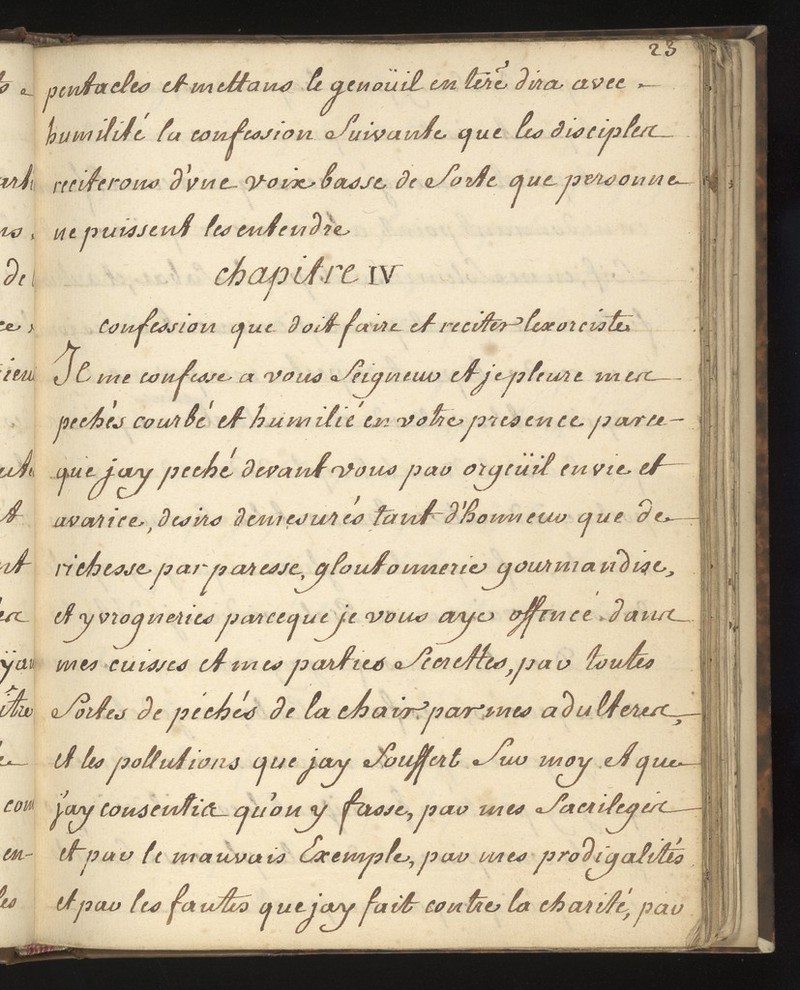 23
pentacles et mettans le genoüil en terre dira avec
humilité la confession Suivante que les disciples
reciterons d'vne voix basse de Sorte que personne
ne puissent les entendre
chapitre IV
confession que doit faire et reciter lexorciste
Je me confesse a vous Seigneur et je pleure mes
pechés courbé et humilié en votre presence parce-
que jay peché devant vous par orgeüil envie et
avarice, desirs demesurés tant d'honneur que de
richesse par paresse, gloutonnerie gourmandise,
et yvrogneries parceque je vous aye offencé dans
mes cuisses et mes parties Secrettes, par toutes
Sortes de péchés de la chair par mes adulteres,
et les pollutions que jay Souffert Sur moy et que
j'ay consentis qu'on y fasse, par mes Sacrileges
et par le mauvais Exemple, par mes prodigalités
et par les fautes que jay fait contre la charité, par